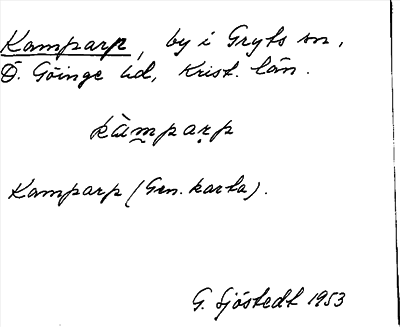 Kamparp, by i Gryts sn,
Ö. Göinge hd, Krist. län.
kàm̰pạrp
Kamparp (Gen. karta).
G. Sjöstedt 1953